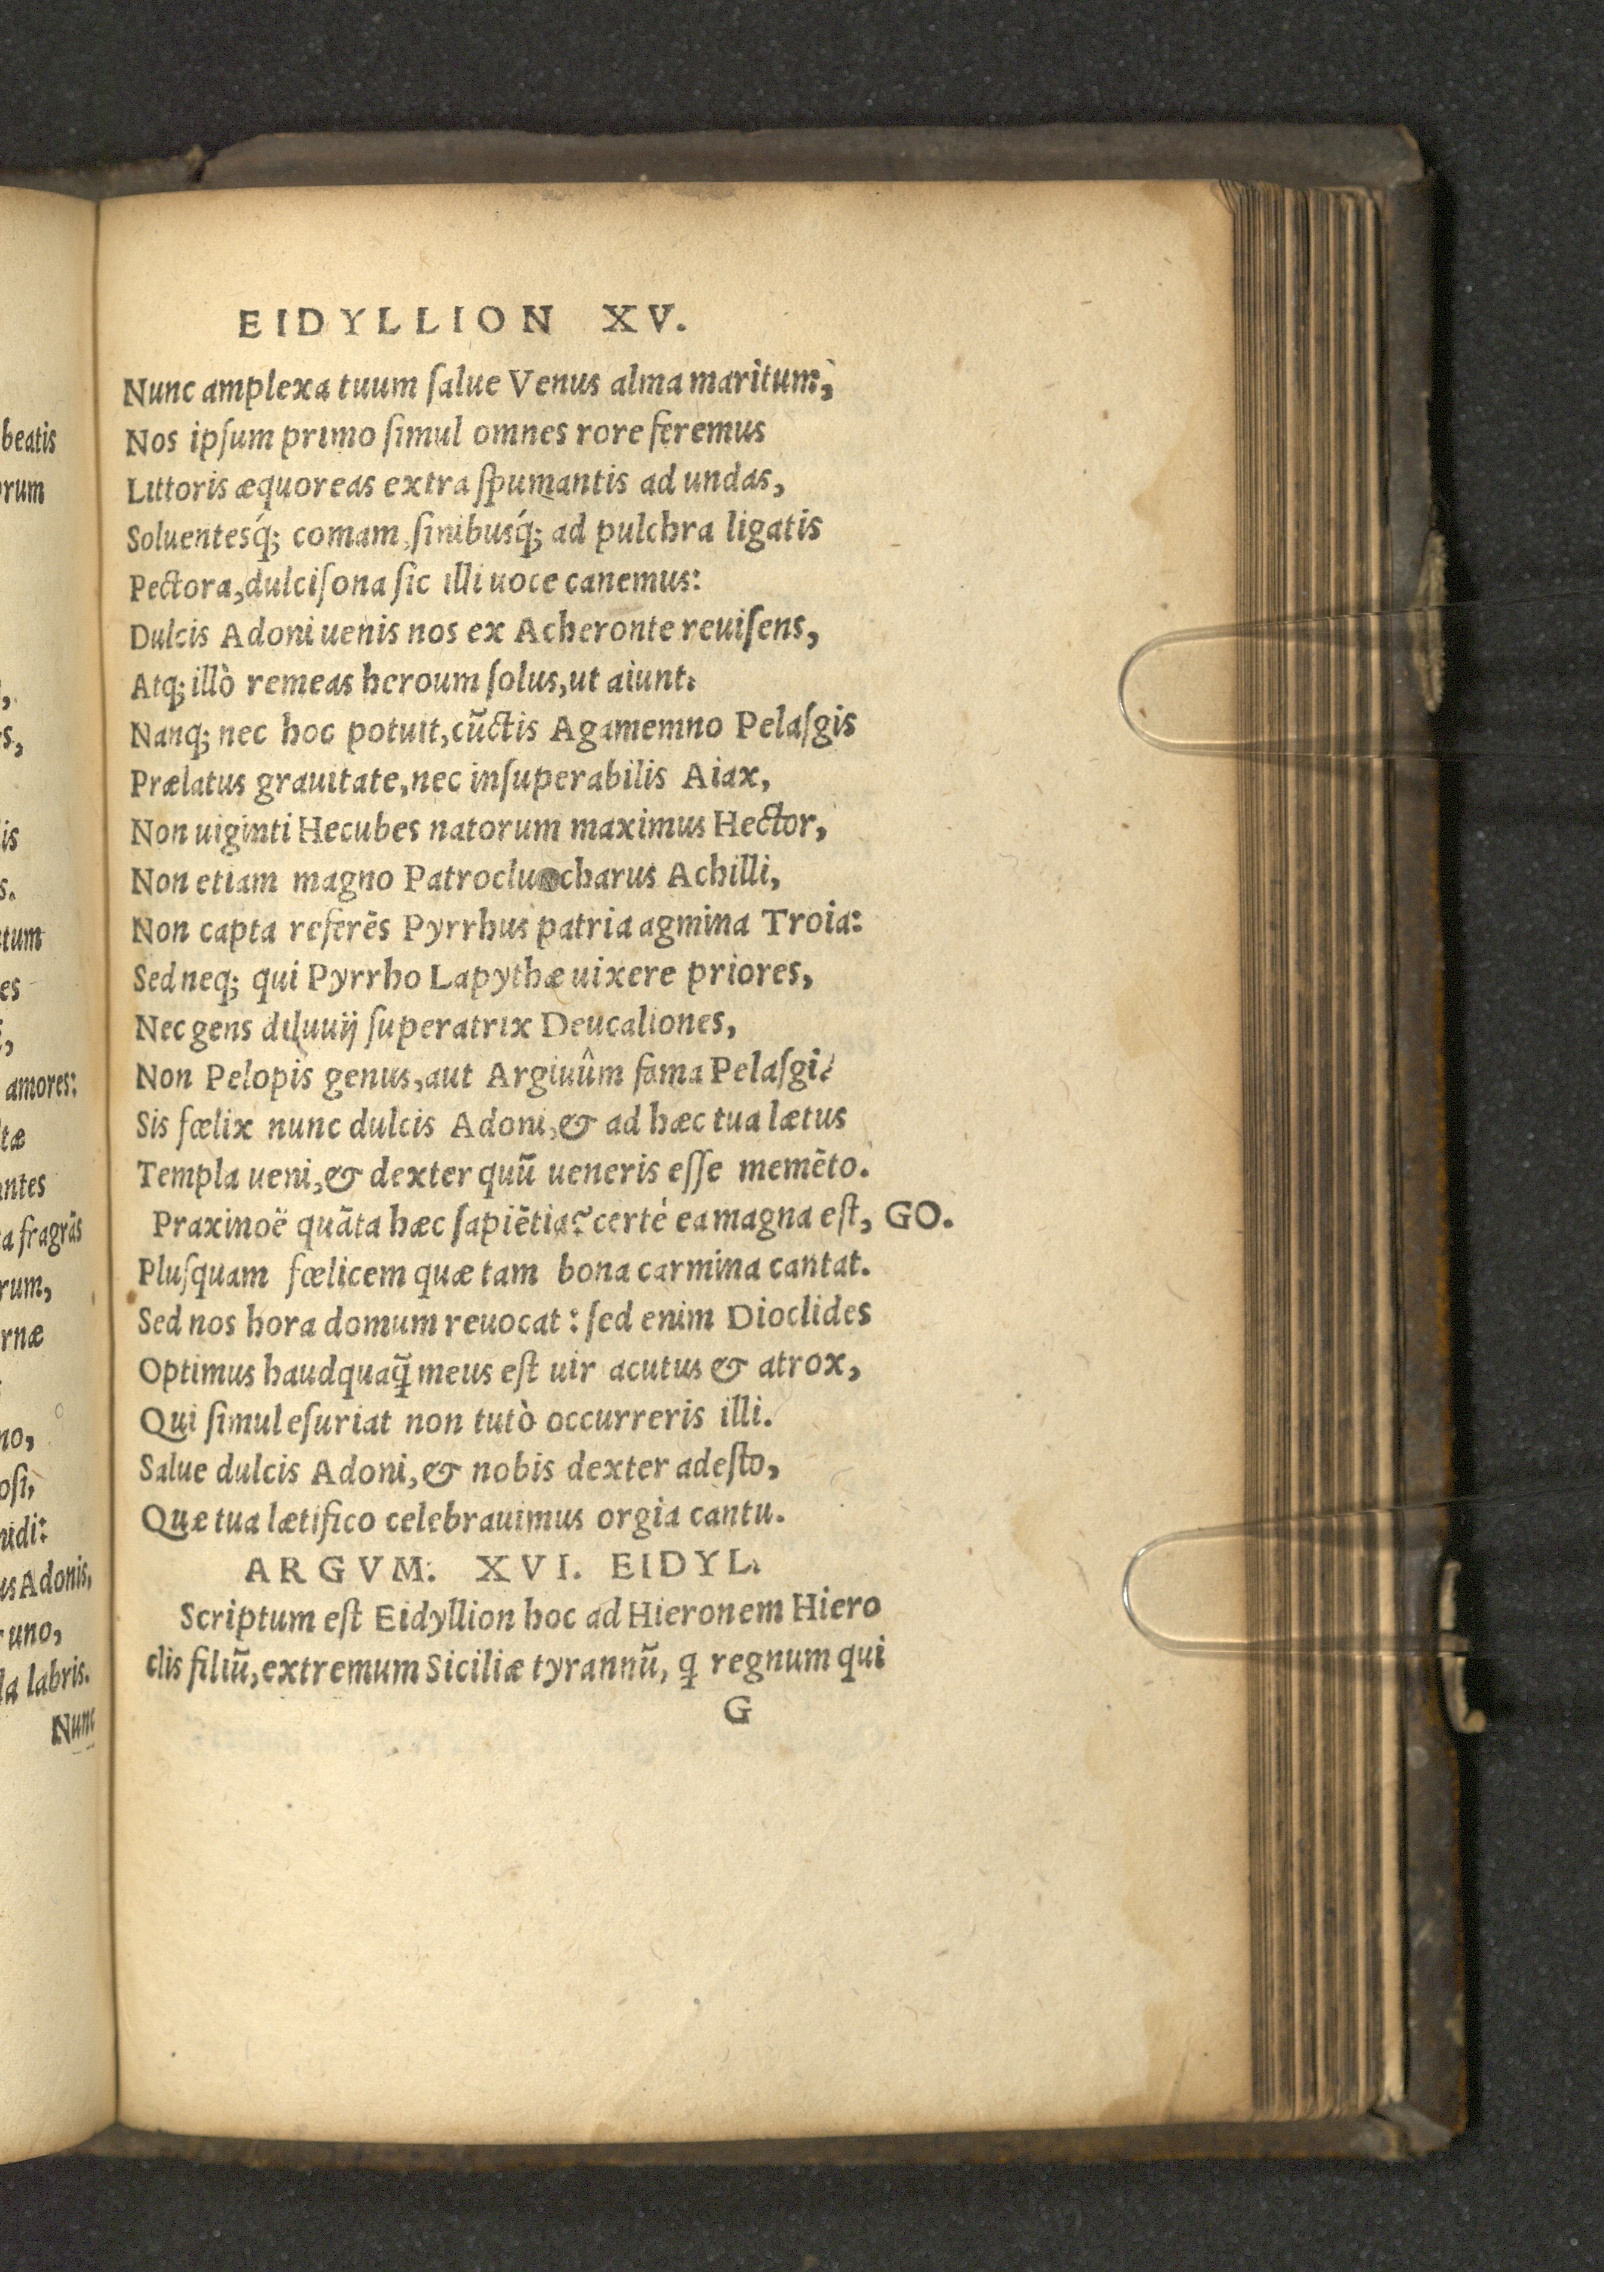 EIDYLLION XV.
Nunc amplexa tuum ſalue Venus alma maritum,
Nos ipſum primo ſimul omnes rore feremus
Littoris æquoreas extra ſpumantis ad undas,
Soluentesq́; comam, ſinibusq́; ad pulchra ligatis
Pectora, dulciſona ſic illi uoce canemus:
Dulcis Adoni uenis nos ex Acheronte reuiſens,
Atq; illò remeas heroum ſolus, ut aiunt.
Nanq; nec hoc potuit, cũctis Agamemno Pelaſgis
Prælatus grauitate, nec inſuperabilis Aiax,
Non uiginti Hecubes natorum maximus Hector,
Non etiam magno Patroclus charus Achilli,
Non capta referẽs Pyrrhus patria agmina Troia:
Sed neq; qui Pyrrho Lapythæ uixere priores,
Nec gens diluuij ſuperatrix Deucaliones,
Non Pelopis genus, aut Argiuûm fama Pelaſgi?
Sis fœlix nunc dulcis Adoni, & ad hæc tua lætus
Templa ueni, & dexter quũ ueneris eſſe memẽto.
Praxinoë quãta hæc ſapiẽtia? certé ea magna eſt, GO.
Pluſquam fœlicem quæ tam bona carmina cantat.
Sed nos hora domum reuocat: ſed enim Dioclides
Optimus haudquaq̃ meus eſt uir acutus & atrox,
Qui ſimul eſuriat non tutò occurreris illi.
Salue dulcis Adoni, & nobis dexter adeſto,
Quæ tua lætifico celebrauimus orgia cantu.
ARGVM. XVI. EIDYL.
Scriptum eſt Eidyllion hoc ad Hieronem Hiero
clis filiũ, extremum Siciliæ tyrannũ, q regnum qui
G
beatis
orum
,
s,
is
s.
tum
es
,
amores:
tæ
antes
a fragrãs
rum,
rnæ
no,
oſi,
nidi:
us Adonis,
uno,
la labris.
Nunc